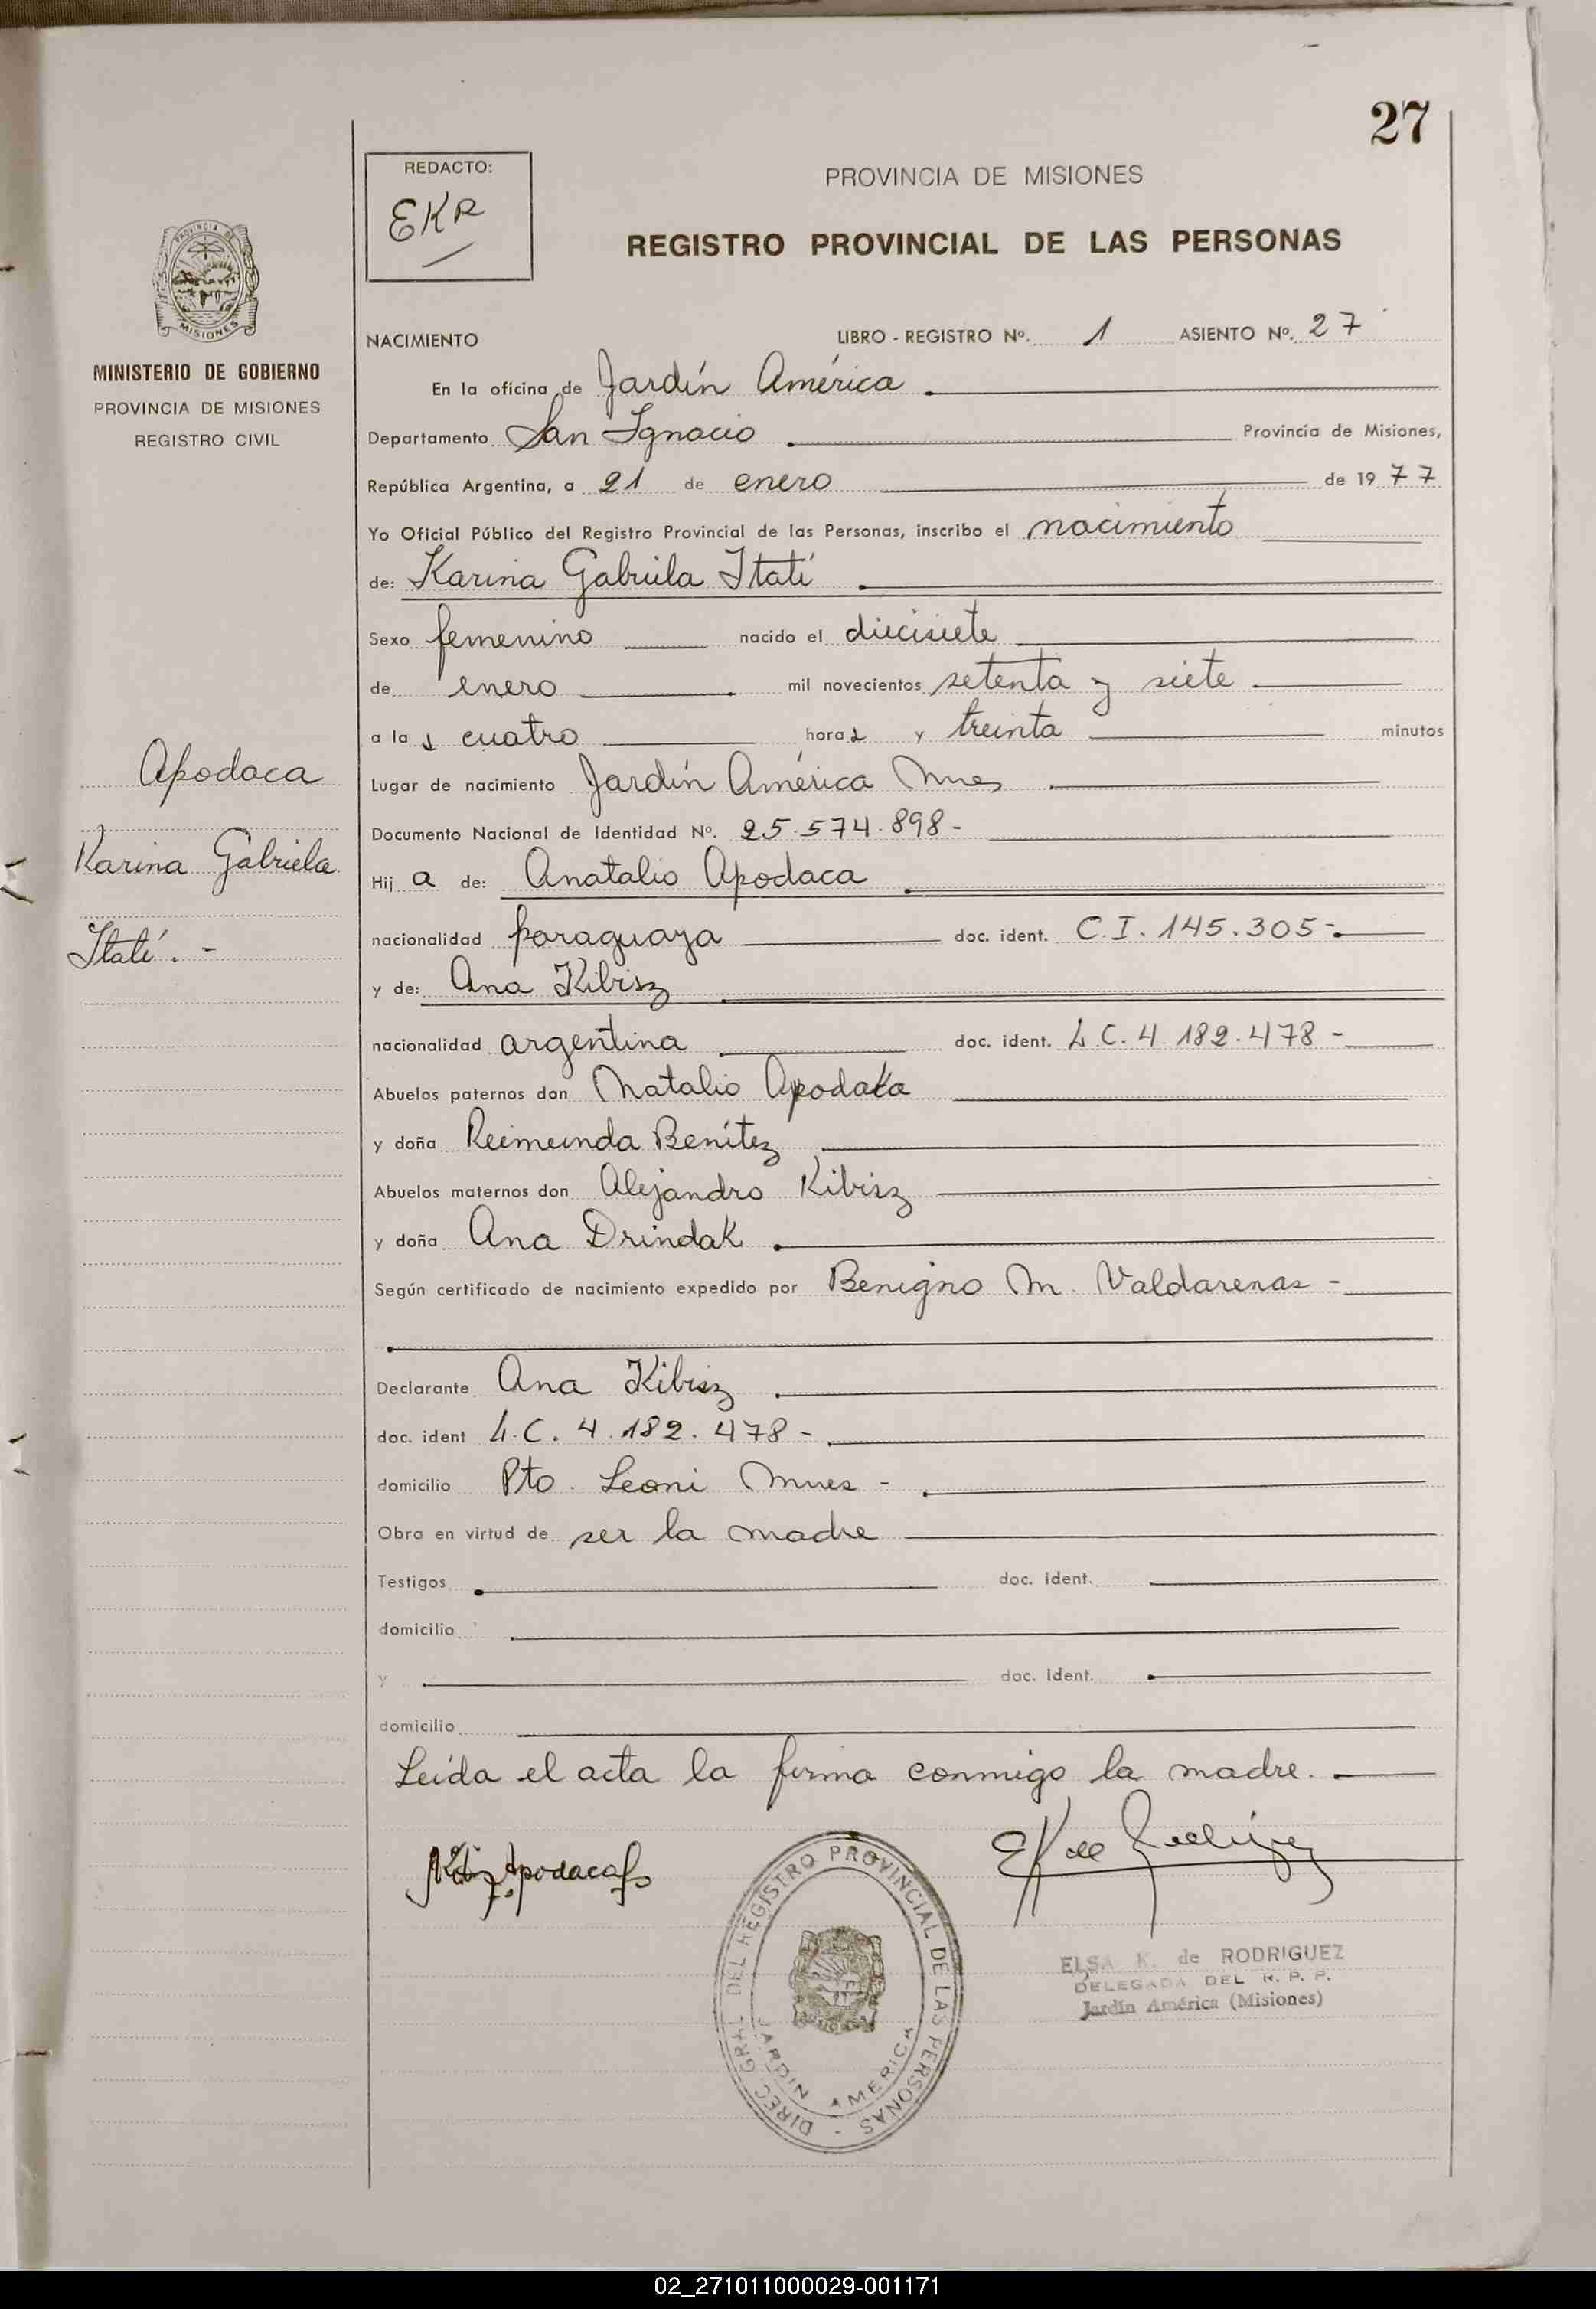 27
REDACTO:
EKR
PROVINCIA DE MISIONES
REGISTRO PROVINCIAL DE LAS PERSONAS
PROVINCIA DE
MISIONES
MINISTERIO DE GOBIERNO
PROVINCIA DE MISIONES
REGISTRO CIVIL
NACIMIENTO LIBRO - REGISTRO Nº. 1 ASIENTO Nº. 27
En la oficina de Jardín América
Departamento San Ignacio Provincia de Misiones,
República Argentina, a 21 de enero de 1977
Yo Oficial Público del Registro Provincial de las Personas, inscribo el nacimiento
de: Karina Gabriela Itatí
Sexo femenino nacido el diecisiete
de enero mil novecientos setenta y siete
a las cuatro horas y treinta minutos
Apodaca
Karina Gabriela
Itatí. -
Lugar de nacimiento Jardín América Mnes
Documento Nacional de Identidad Nº. 25.574.898-
Hija de: Anatalio Apodaca
nacionalidad paraguaya doc. ident. C.I. 145.305-
y de: Ana Kibisz
nacionalidad argentina doc. ident. L.C. 4.182.478-
Abuelos paternos don Natalio Apodaca
y doña Reimunda Benítez
Abuelos maternos don Alejandro Kibisz
y doña Ana Drindak
Según certificado de nacimiento expedido por Benigno M. Valdarenas -
Declarante Ana Kibisz
doc. ident L.C. 4.182.478-
domicilio Pto. Leoni Mnes -
Obra en virtud de ser la madre
Testigos doc. ident.
domicilio
y doc. Ident.
domicilio
Leída el acta la firma conmigo la madre.
Apodaca
DIREC. GRAL. DEL REGISTRO PROVINCIAL DE LAS PERSONAS -
JARDIN AMERICA
ELSA K. de RODRIGUEZ
DELEGADA DEL R. P. P.
Jardín América (Misiones)
02_271011000029-001171